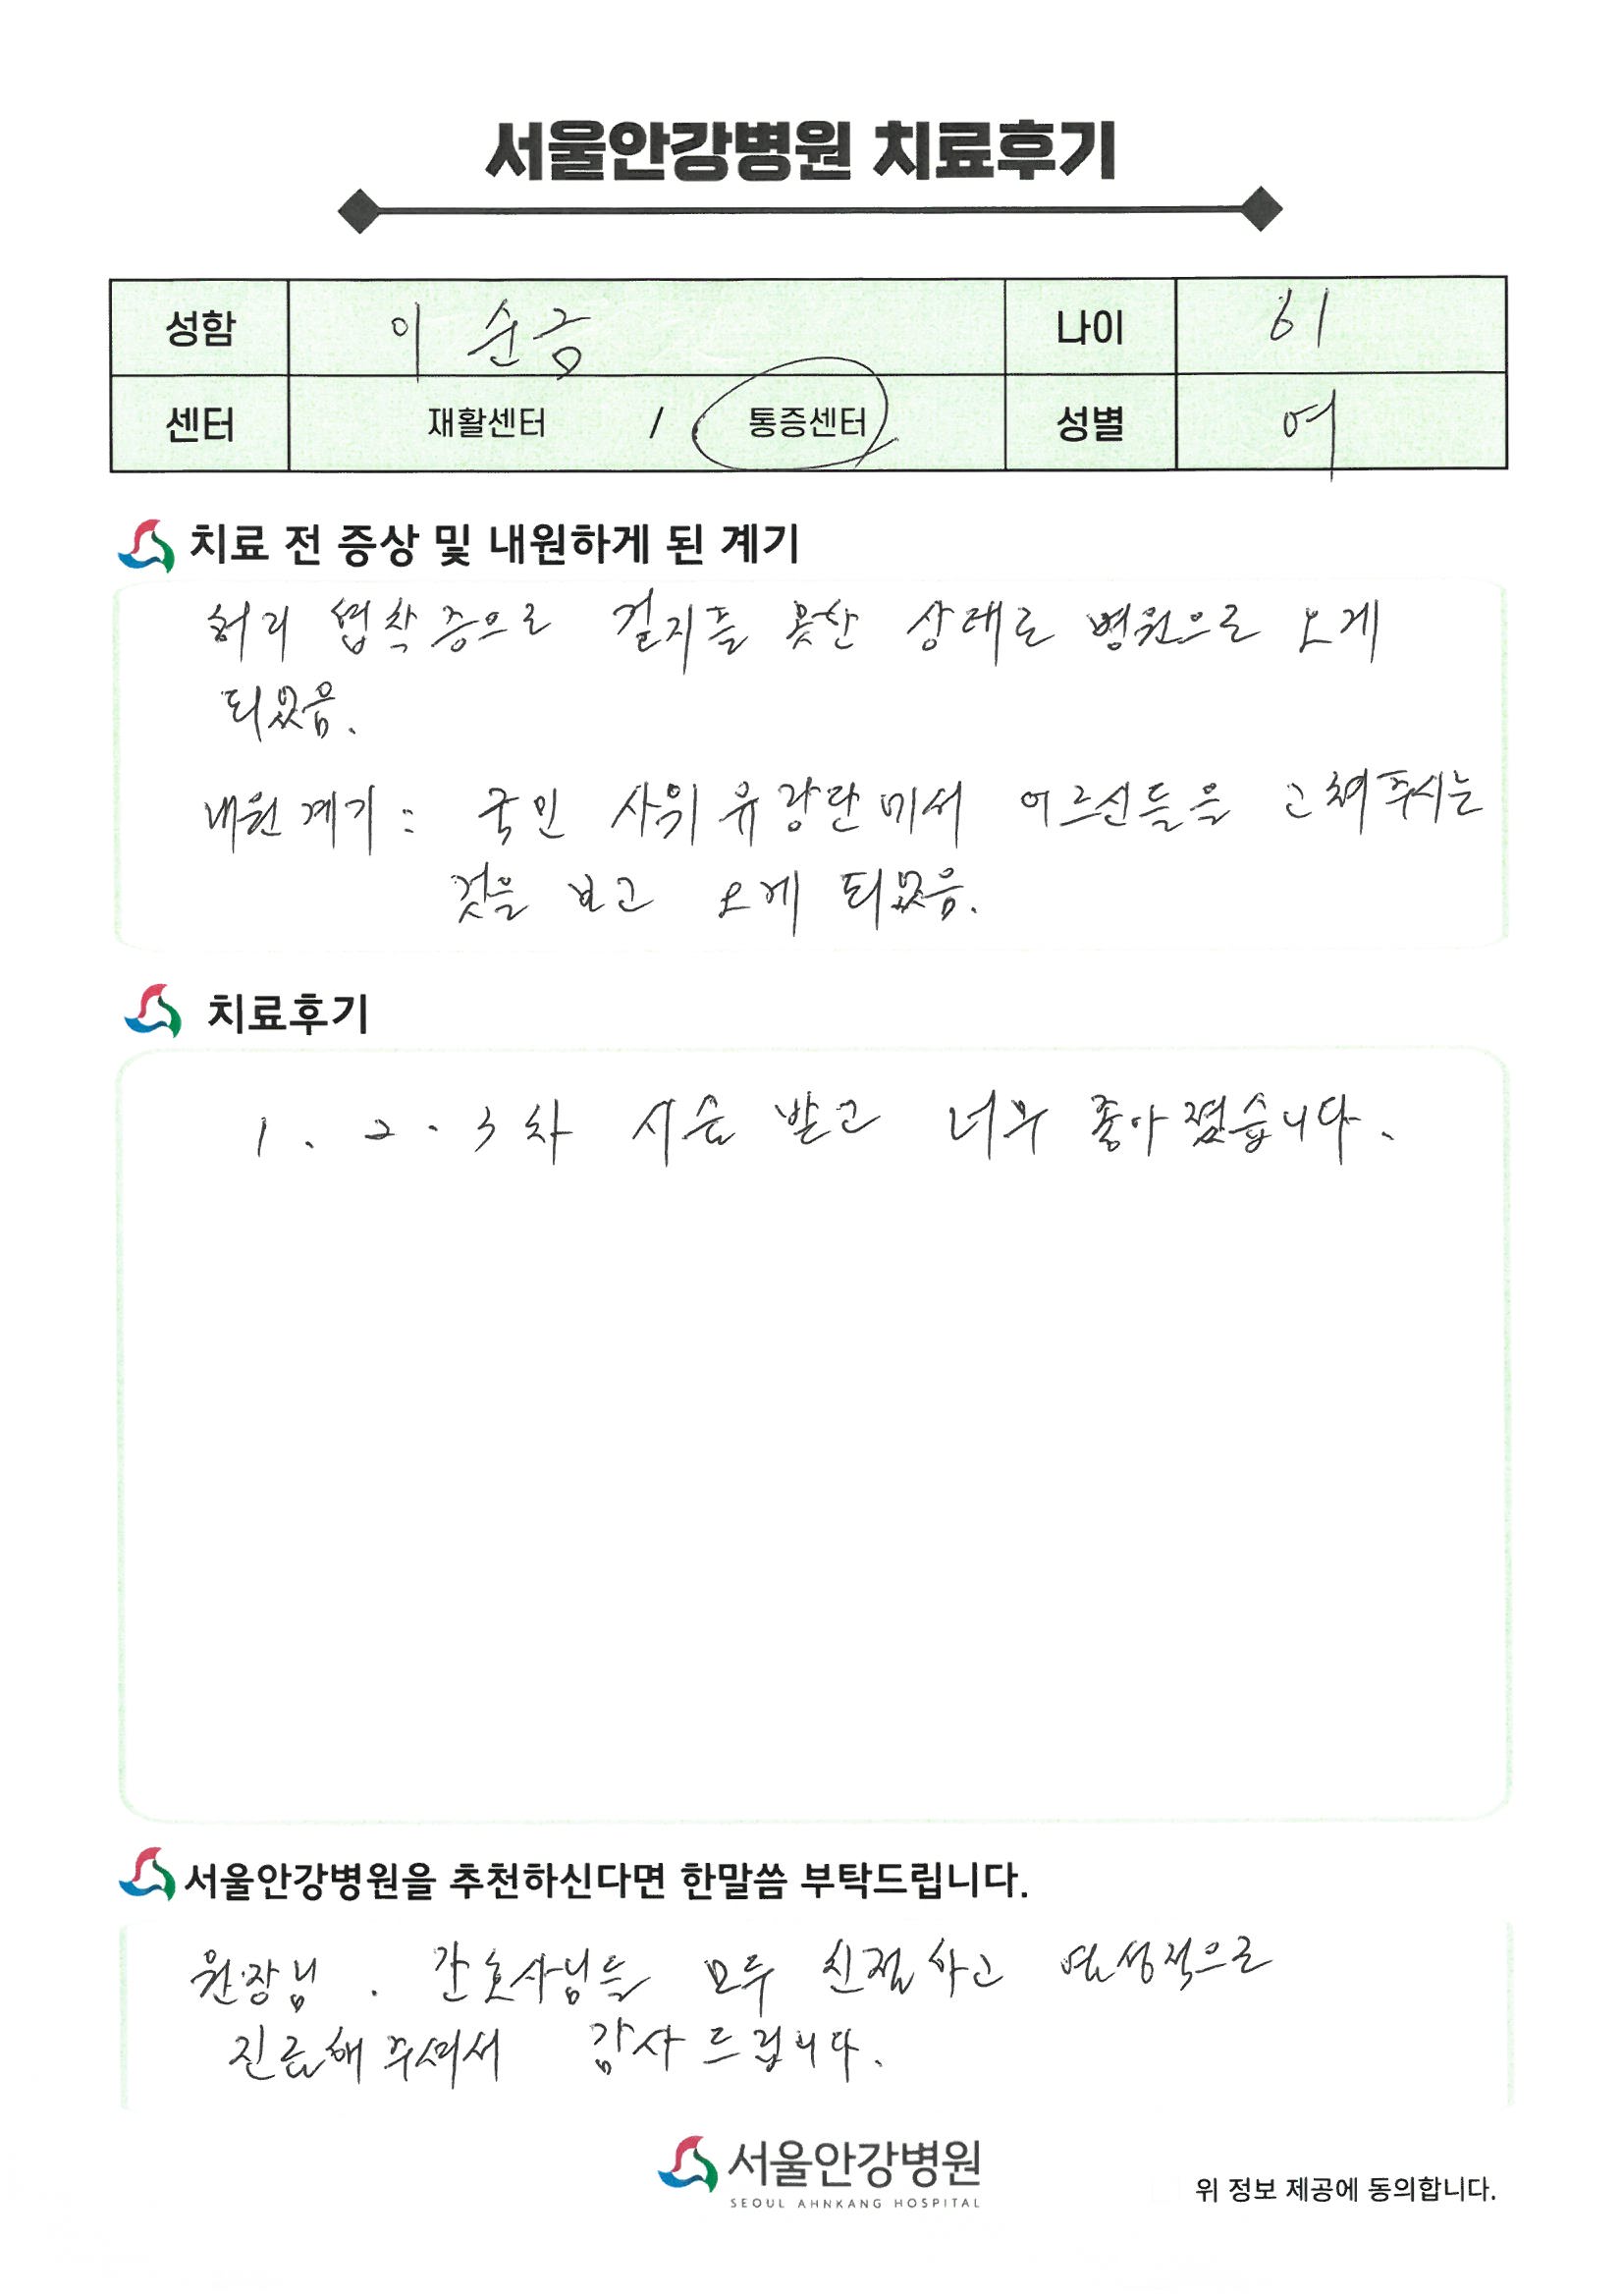 서울안강병원 치료후기
성함 이순금 나이 61
센터 재활센터 / 통증센터 성별 여
치료 전 증상 및 내원하게 된 계기
허리 협착증으로 걸지를 못한 상태로 병원으로 오게
되었음.
내원계기: 국민 사위 유랑단에서 어르신들을 고쳐주시는
것을 보고 오게 되었음.
치료후기
1. 2. 3차 시술 받고 너무 좋아졌습니다.
서울안강병원을 추천하신다면 한말씀 부탁드립니다.
원장님. 간호사님들 모두 친절하고 열성적으로
진료해주셔서 감사드립니다.
서울안강병원
SEOUL AHNKANG HOSPITAL
위 정보 제공에 동의합니다.